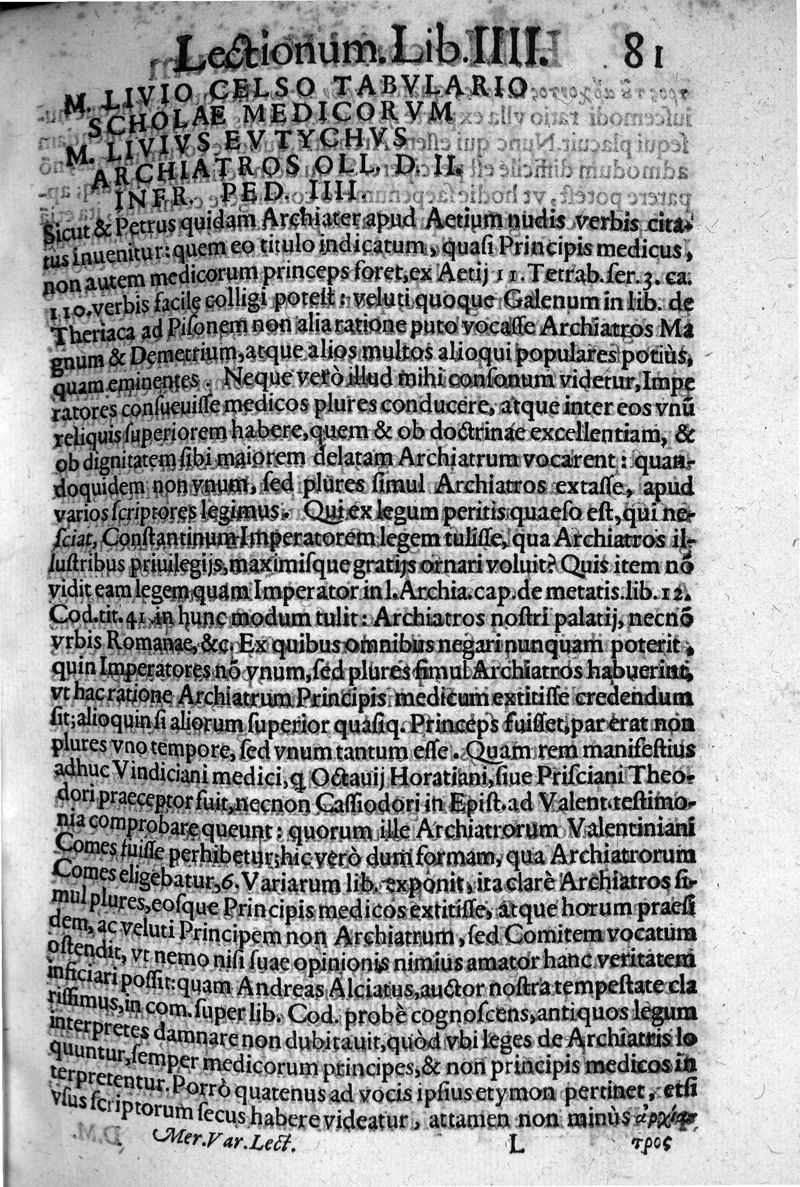 Lectionum. Lib. IIII. 81
M. LIVIO CELSO TABVLARIO
SCHOLAE MEDICORVM
M. LIVIVS EVTYCHVS
ARCHIATROS OLL. D. II.
INFR. PED. IIII.
Sicut & Petrus quidam Archiater apud Aetium nudis verbis cita-
tus inuenitur: quem eo titulo indicatum, quaſi Principis medicus,
non autem medicorum princeps foret, ex Aetij 11. Tetrab. ſer. 3. ca.
110. verbis facile colligi poteſt: veluti quoque Galenum in lib. de
Theriaca ad Piſonem non alia ratione puto vocaſſe Archiatros Ma
gnum & Demetrium, atque alios multos alioqui populares potius,
quam eminentes. Neque verò illud mihi conſonum videtur, Impe
ratores conſueuiſſe medicos plures conducere, atque inter eos vnũ
reliquis ſuperiorem habere, quem & ob doctrinae excellentiam, &
ob dignitatem ſibi maiorem delatam Archiatrum vocarent: quan-
doquidem non vnum, ſed plures ſimul Archiatros extaſſe, apud
varios ſcriptores legimus. Qui ex legum peritis quaeſo eſt, qui ne-
ſciat, Conſtantinum Imperatorem legem tuliſſe, qua Archiatros il-
luſtribus priuilegijs, maximiſque gratijs ornari voluit? Quis item nõ
vidit eam legem quam Imperator in l. Archia. cap. de metatis. lib. 12.
Cod. tit. 41. in hunc modum tulit: Archiatros noſtri palatij, necnõ
vrbis Romanae, &c. Ex quibus omnibus negari nunquam poterit,
quin Imperatores nõ vnum, ſed plures ſimul Archiatros habuerint,
vt hac ratione Archiatrum Principis medicum extitiſſe credendum
ſit; alioquin ſi aliorum ſuperior quaſiq. Princeps fuiſſet, par erat non
plures vno tempore, ſed vnum tantum eſſe. Quam rem manifeſtius
adhuc Vindiciani medici, q Octauij Horatiani, ſiue Priſciani Theo-
dori praeceptor fuit, necnon Caſſiodori in Epiſt. ad Valent. teſtimo-
nia comprobare queunt: quorum ille Archiatrorum Valentiniani
Comes fuiſſe perhibetur; hic verò dum formam, qua Archiatrorum
Comes eligebatur, 6. Variarum lib. exponit, ita clarè Archiatros ſi-
mul plures, eoſque Principis medicos extitiſſe, atque horum praeſi
dem, ac veluti Principem non Archiatrum, ſed Comitem vocatum
oſtendit, vt nemo niſi ſuae opinionis nimius amator hanc veritatem
inficiari poſſit: quam Andreas Alciatus, auctor noſtra tempeſtate cla
riſſimus, in com. ſuper lib. Cod. probè cognoſcens, antiquos legum
interpretes damnare non dubitauit, quòd vbi leges de Archiatris lo
quuntur, ſemper medicorum principes, & non principis medicos in
terpretentur. Porrò quatenus ad vocis ipſius etymon pertinet, etſi
vſus ſcriptorum ſecus habere videatur, attamen non minùs ἀρχίατ
Mer. Var. Lect. L τρος